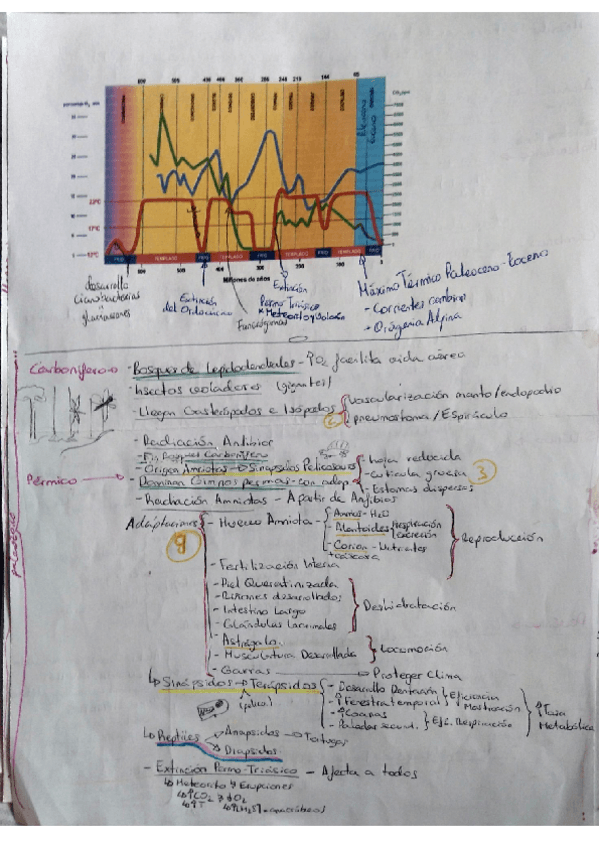 600 500 439 408 360 286 248 210 144 65
22°C
17°C
12°C
FRIO TEMPLADO FRIO TEMPLADO FRIO TEMPLADO FRIO TEMPLADO FRIO
600 500 400 300 200 100
Millones de años
Desarrollo
Cianobacterias
glaciaciones
Extinción
del Ordovícico
Extinción
Permo-Triásico
Máximo Térmico Paleoceno-Eoceno
- Corrientes cambian
- Orogenia Alpina
Carbonífero
- Bosques de Lepidodendrales - ↑O₂ facilita vida aérea
- Insectos voladores (gigantes)
- Llegan Gasterópodos e Isópodos
Vascularización manto/endopodio
pneumostoma / Espiráculo
- Radiación Anfibios
- Fin Bosques Carbonífero
- Origen Amniotas → Sinápsidos Pelicosaurios
Pérmico
- Dominan Gimnospermas - con adap
- hoja reducida
- cutícula gruesa
- Estomas dispersos
3
- Radiación Amniotas - A partir de Anfibios
Adaptaciones
- Huevo Amniota
- Amnios - H₂O
- Alantoides
Respiración
Excreción
- Corion - Nutrientes
+ cáscara
Reproducción
- Fertilización Interna
- Piel Queratinizada
- Riñones desarrollados
- Intestino Largo
- Glándulas Lacrimales
Deshidratación
- Astrágalo
- Musculatura Desarrollada
Locomoción
- Garras → Proteger Clima
↳ Sinápsidos → Terápsidos
- Desarrollo Dentición
- ↑Fenestra temporal
Eficiencia
Masticación
- ↑Coanas
- Paladar secund.
Efic. Respiración
↑Tasa
Metabólica
↳ Reptiles
Anápsidos → Tortugas
Diápsidos
- Extinción Permo-Triásico - Afecta a todos
↳ Meteorito y Erupciones
↳ ↑CO₂ y ↓O₂
↳ ↑T